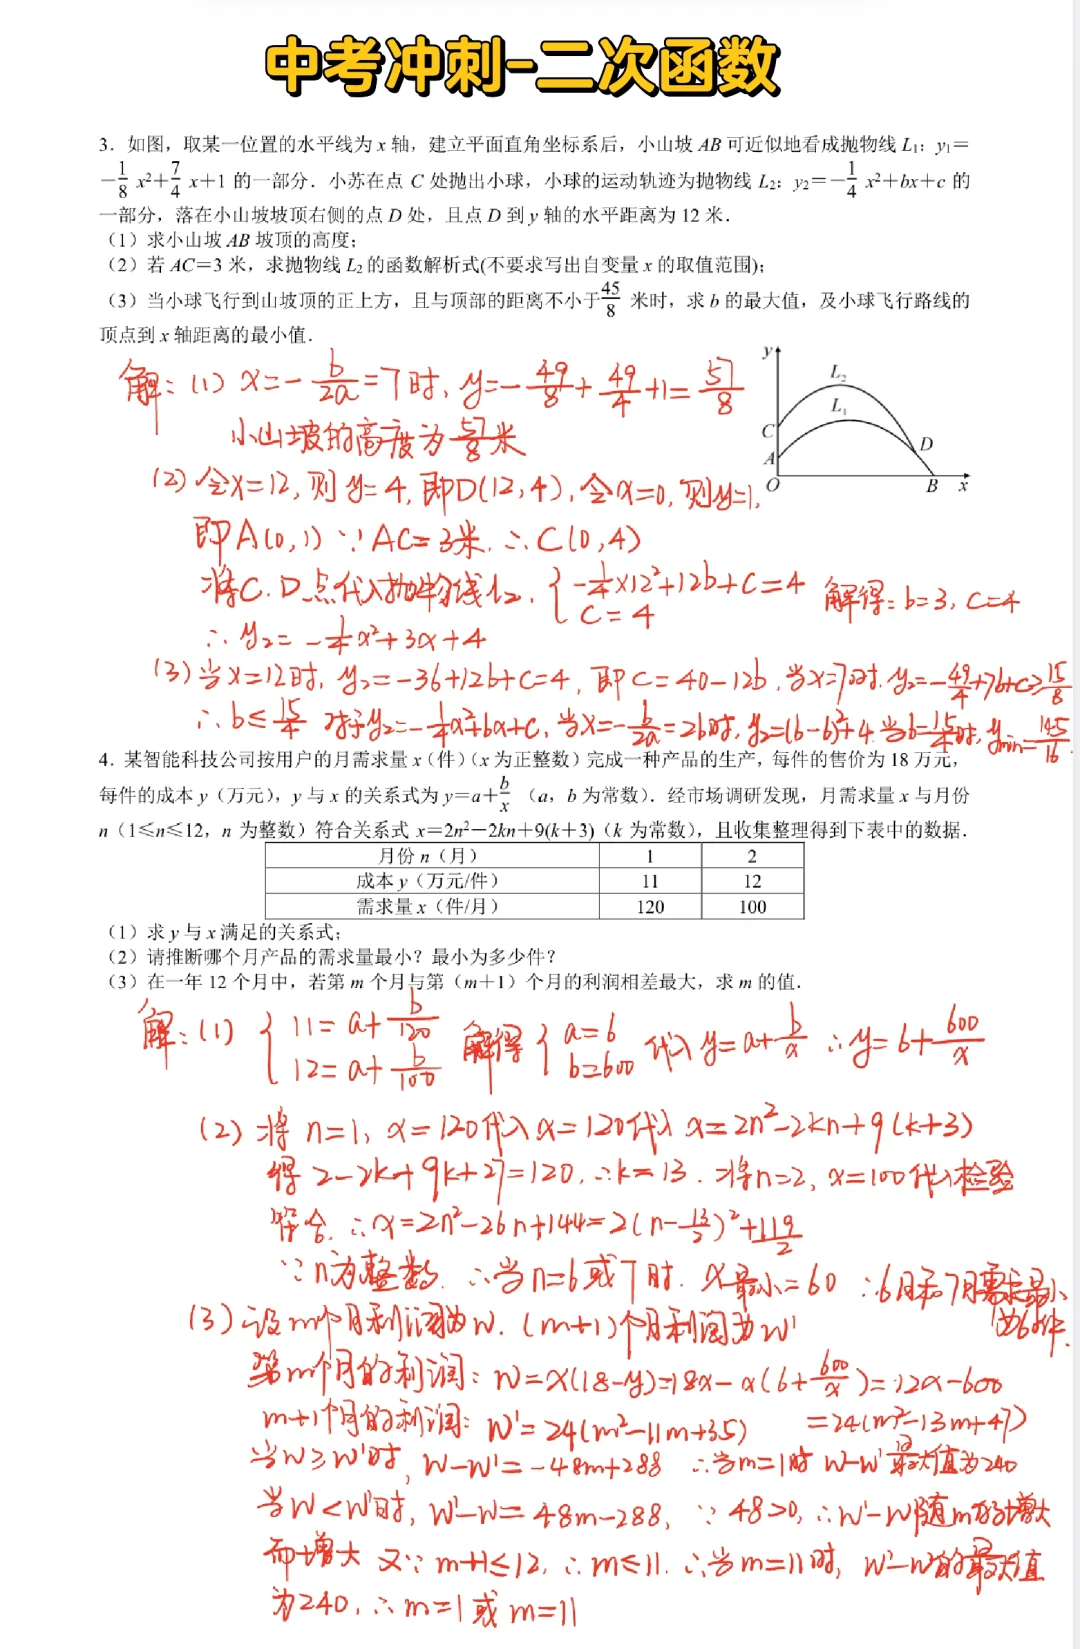 中考冲刺-二次函数
3．如图，取某一位置的水平线为 x 轴，建立平面直角坐标系后，小山坡 AB 可近似地看成抛物线 L₁：y₁＝
－1/8 x²＋7/4 x＋1 的一部分．小苏在点 C 处抛出小球，小球的运动轨迹为抛物线 L₂：y₂＝－1/4 x²＋bx＋c 的
一部分，落在小山坡坡顶右侧的点 D 处，且点 D 到 y 轴的水平距离为 12 米．
（1）求小山坡 AB 坡顶的高度；
（2）若 AC＝3 米，求抛物线 L₂ 的函数解析式(不要求写出自变量 x 的取值范围)；
（3）当小球飞行到山坡顶的正上方，且与顶部的距离不小于 45/8 米时，求 b 的最大值，及小球飞行路线的
顶点到 x 轴距离的最小值．
y
L₂
L₁
C
A
D
O
B
x
解：(1) x=-b/2a=7时，y=-49/8+49/4+1=57/8
小山坡的高度为57/8米
(2) 令x=12，则y=4，即D(12,4)，令x=0，则y=1，
即A(0,1) ∵AC=3米，∴C(0,4)
将C、D点代入抛物线L₂，{-1/4×12²+12b+c=4 c=4 解得：b=3，c=4
∴y₂=-1/4x²+3x+4
(3) 当x=12时，y₂=-36+12b+c=4，即c=40-12b，当x=7时，y₂=-49/4+7b+c≥15/8
∴b≤15/4 对于y₂=-1/4x²+bx+c，当x=-b/2a=2b时，y₂=(6-b)²+4 当b=15/4时，ymin=145/16
4．某智能科技公司按用户的月需求量 x（件）（x 为正整数）完成一种产品的生产，每件的售价为 18 万元，
每件的成本 y（万元），y 与 x 的关系式为 y=a＋b/x （a，b 为常数）．经市场调研发现，月需求量 x 与月份
n（1≤n≤12，n 为整数）符合关系式 x＝2n²－2kn＋9(k＋3)（k 为常数），且收集整理得到下表中的数据．
月份 n（月） 1 2
成本 y（万元/件） 11 12
需求量 x（件/月） 120 100
（1）求 y 与 x 满足的关系式；
（2）请推断哪个月产品的需求量最小？最小为多少件？
（3）在一年 12 个月中，若第 m 个月与第（m＋1）个月的利润相差最大，求 m 的值．
解：(1) {11=a+b/120 12=a+b/100 解得{a=6 b=600 代入y=a+b/x ∴y=6+600/x
(2) 将n=1，x=120代入x=120代入x=2n²-2kn+9(k+3)
得2-2k+9k+27=120，∴k=13．将n=2，x=100代入检验
符合．∴x=2n²-26n+144=2(n-13/2)²+119/2
∵n为整数．∴当n=6或7时．x最小=60 ∴6月和7月需求最小
为60件.
(3) 设m个月利润为W，(m+1)个月利润为W'
第m个月的利润：W=x(18-y)=18x-x(6+600/x)=12x-600
=24(m²-13m+47)
m+1个月的利润：W'=24(m²-11m+35)
当W≥W'时，W-W'=-48m+288 ∴当m=1时 W-W'最大值为240
当W<W'时，W'-W=48m-288，∵48>0，∴W'-W随m的增大
而增大 又∵m+1≤12，∴m≤11．∴当m=11时，W'-W的最大值
为240，∴m=1或m=11